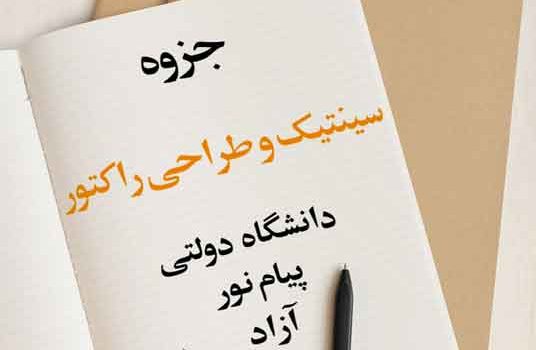 جزوه
سینتیک و طراحی راکتور
دانشگاه دولتی
پیام نور
آزاد